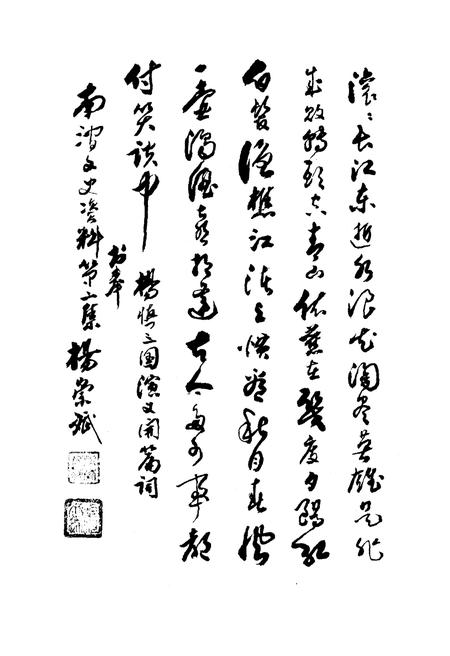 滚滚长江东逝水浪花淘尽英雄是非
成败转头空青山依舊在幾度夕陽红
白发渔樵江渚上惯看秋月春风
一壶浊酒喜相逢古今多少事都
付笑谈中 楊慎三国演义開篇词
书奉
南 文史资料第二集 楊